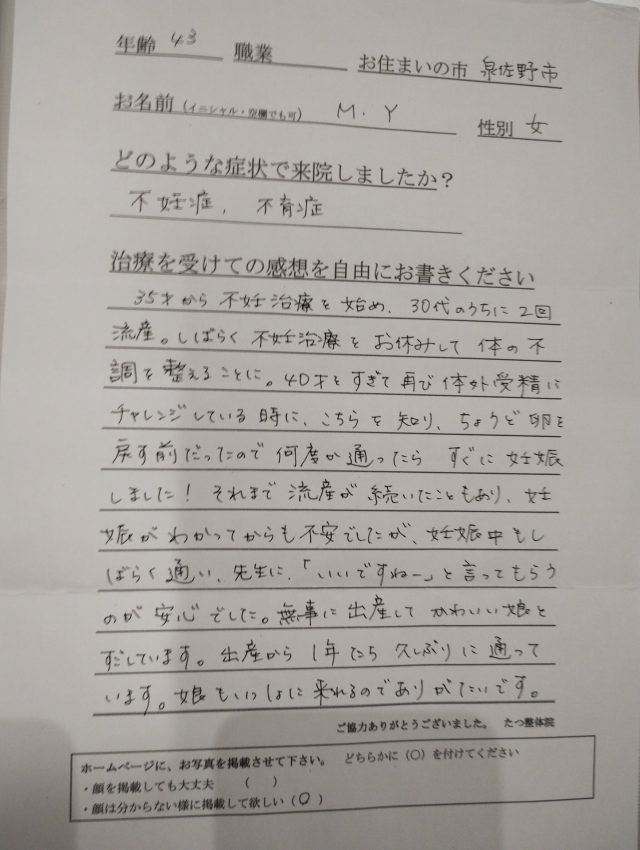 年齢 43 職業 お住まいの市 泉佐野市
お名前（イニシャル・空欄でも可） M.Y 性別 女
どのような症状で来院しましたか？
不妊症、不育症
治療を受けての感想を自由にお書きください
35才から不妊治療を始め、30代のうちに2回
流産。しばらく不妊治療をお休みして体の不
調を整えることに。40才をすぎて再び体外受精に
チャレンジしている時に、こちらを知り、ちょうど卵を
戻す前だったので何度か通ったらすぐに妊娠
しました！それまで流産が続いたこともあり、妊
娠がわかってからも不安でしたが、妊娠中もし
ばらく通い、先生に、「いいですねー」と言ってもらう
のが安心でした。無事に出産してかわいい娘と
すごしています。出産から1年たち久しぶりに通って
います。娘もいっしょに来れるのでありがたいです。
ご協力ありがとうございました。 たつ整体院
ホームページに、お写真を掲載させて下さい。 どちらかに（○）を付けてください
・顔を掲載しても大丈夫 （ ）
・顔は分からない様に掲載して欲しい（○）